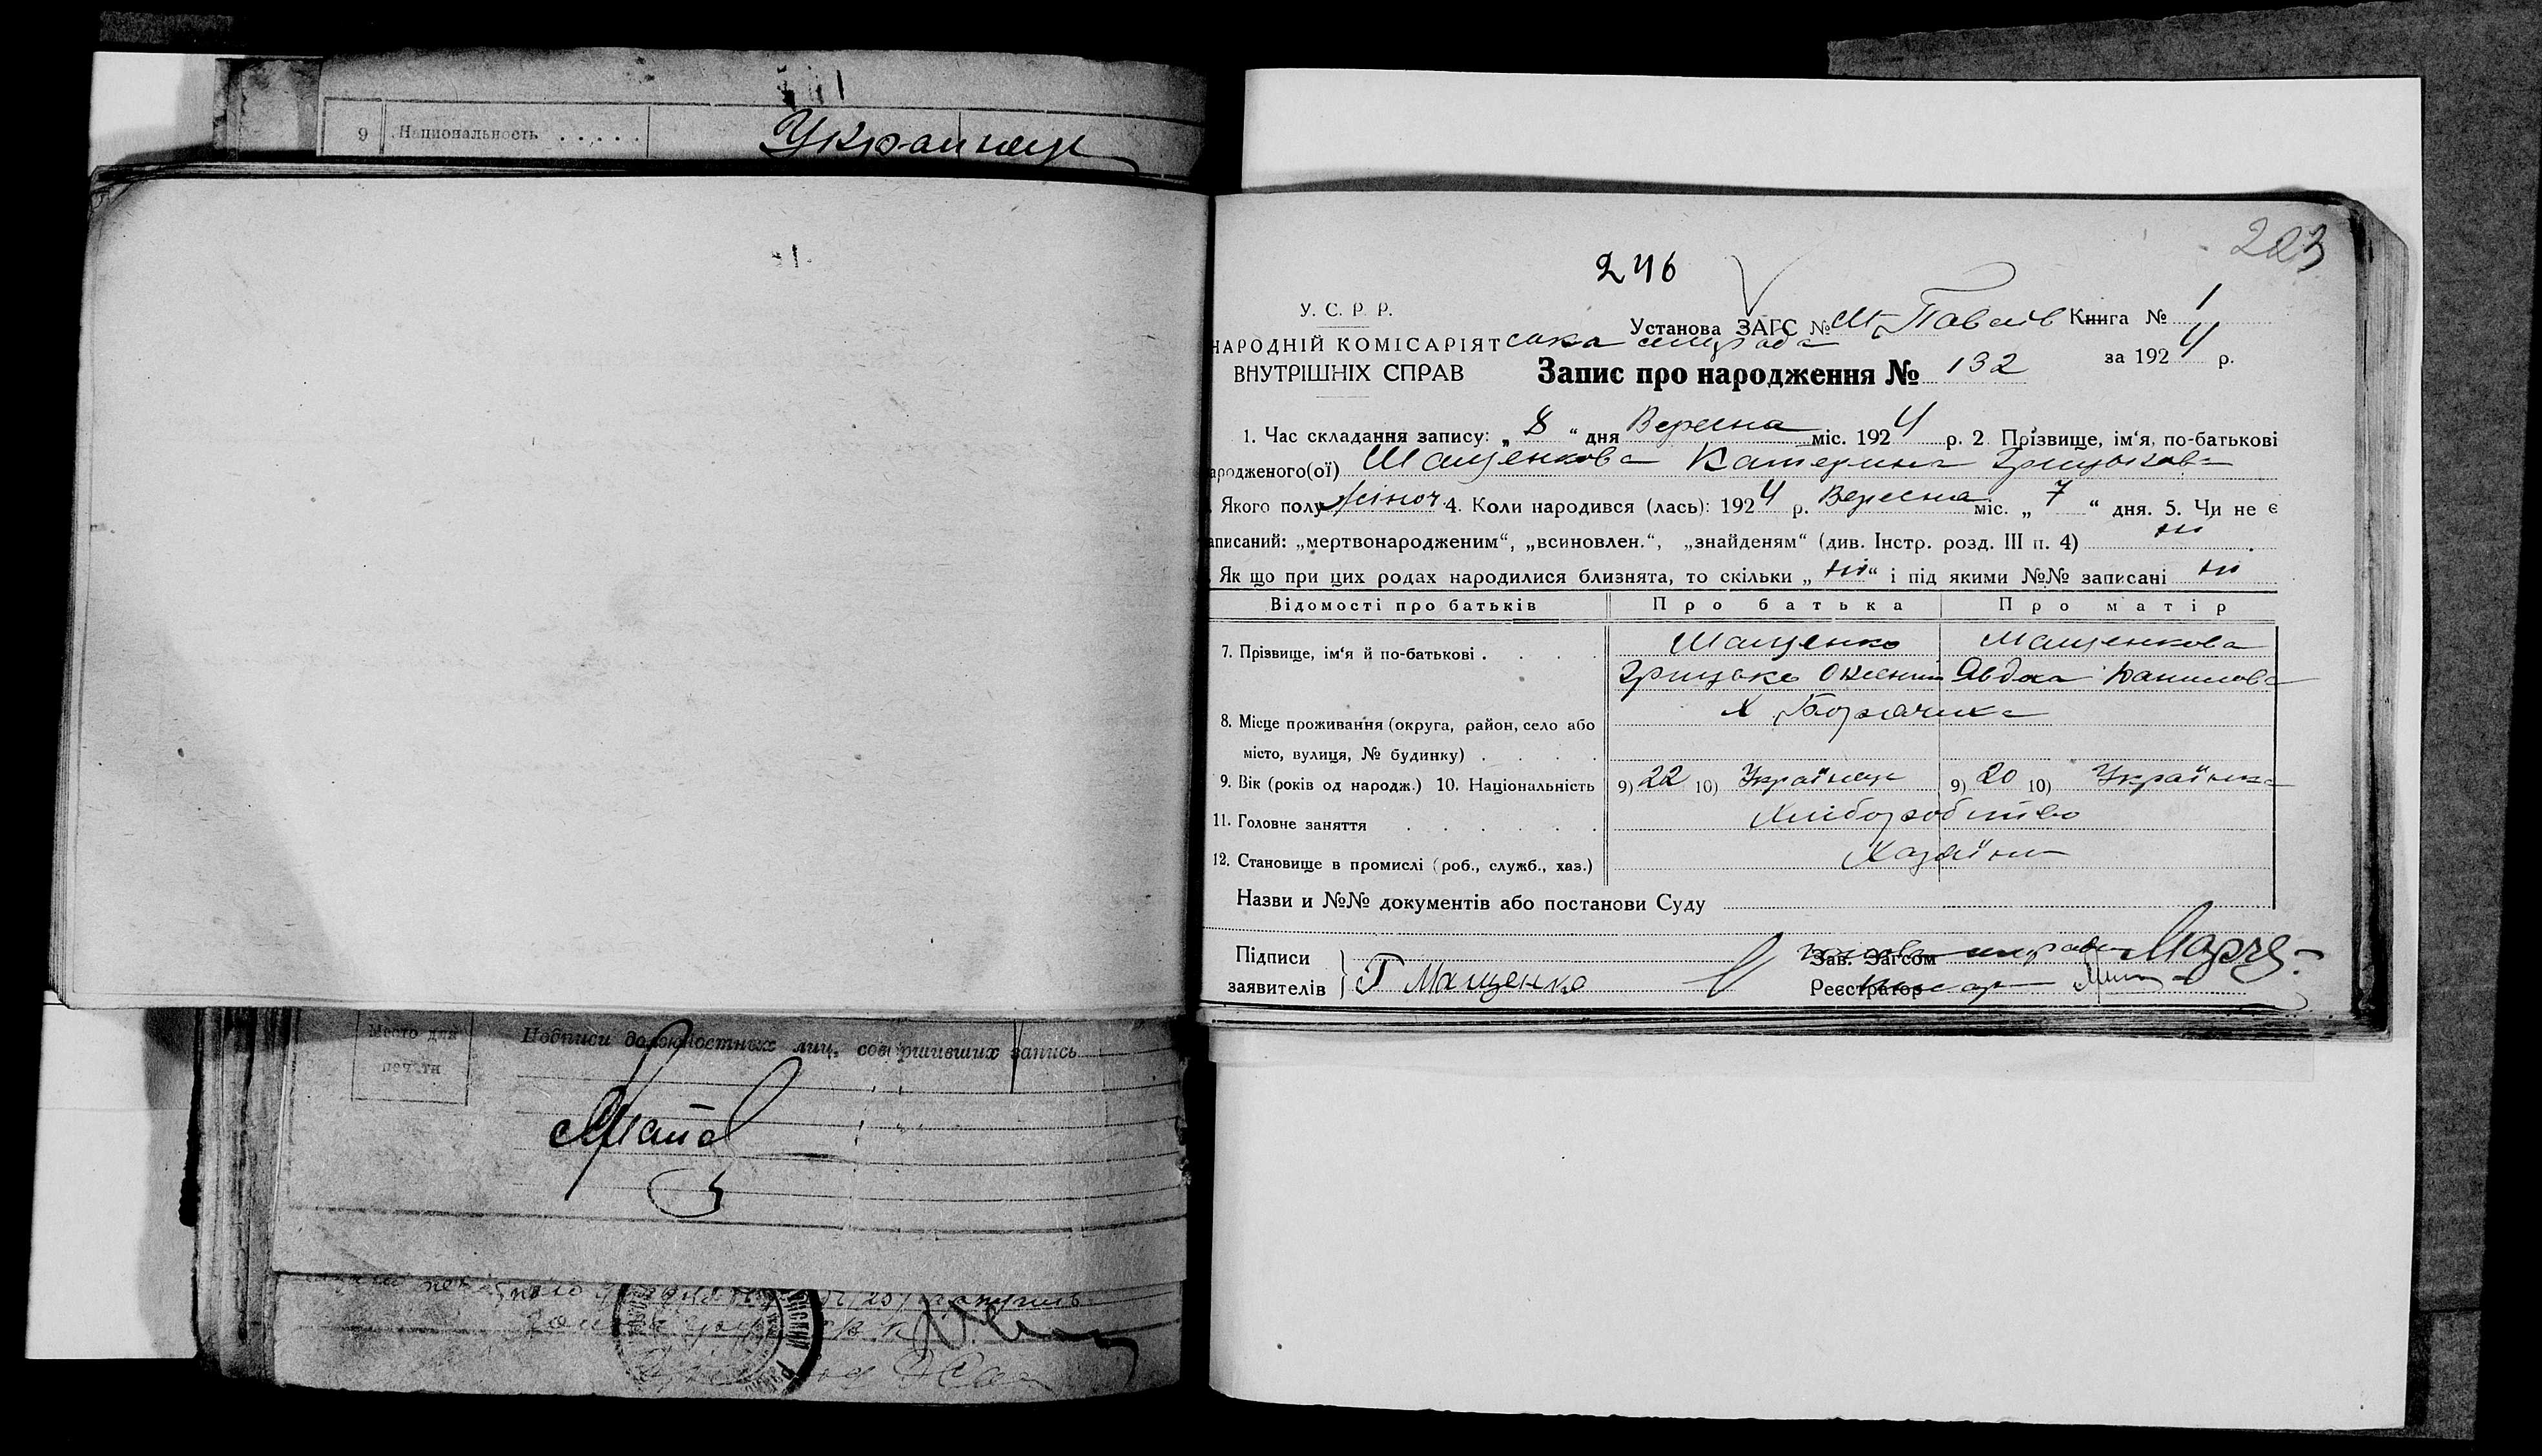 9 Национальность . . . . .
Украинец
223
246
У. С. Р. Р.
Установа ЗАГС № М Павлів Книга № 1
НАРОДНІЙ КОМІСАРІЯТ ська сільрада
за 1924 р.
ВНУТРІШНІХ СПРАВ
Запис про народження № 132
1. Час складання запису: „ 8 “ дня Вересна міс. 1924 р. 2 Прізвище, ім‘я, по-батькові
ародженого(ої) Мащенкова Катерина Грицькова
Якого полу жіноч. 4. Коли народився (лась): 1924 р. Вересна міс. „ 7 “ дня. 5. Чи не є
аписаний: „мертвонародженим“, „всиновлен.“, „знайденям“ (див. Інстр. розд. III п. 4) ні
Як що при цих родах народилися близнята, то скільки „ ні “ і під якими №№ записані ні
Відомості про батьків Про батька Про матір
7. Прізвище, ім‘я й по-батькові . . . . Мащенко Мащенкова
Грицько Явдоха Данилова
8. Місце проживання (округа, район, село або Х
місто, вулиця, № будинку) . . . .
9. Вік (років од народж.) 10. Національність 9) 22 10) Українець 9) 20 10) Українка
11. Головне заняття . . . . . . Хліборобство
12. Становище в промислі (роб., служб., хаз.) Хазяїни
Назви и №№ документів або постанови Суду
Підписи Зав. Загсом голова сільради
заявителів Г Мащенко Реєстратор
Место для печати
Подписи должностных лиц, совершивших запись